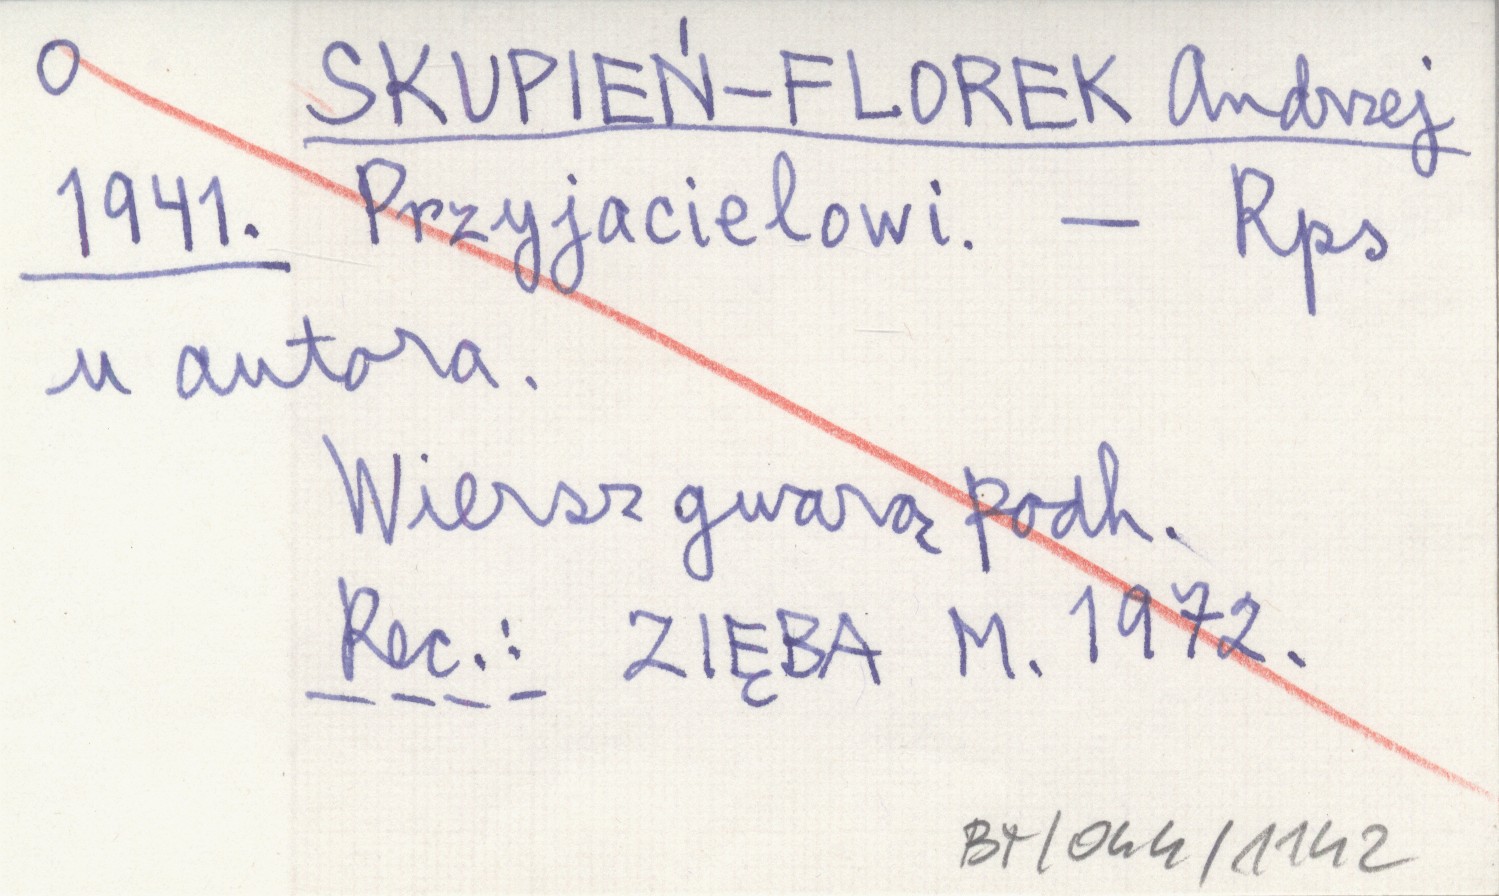 O SKUPIEŃ-FLOREK Andrzej
1941. Przyjacielowi. — Rps
u autora.
Wiersz gwarą podh.
Rec.: ZIĘBA M. 1972.
BT/044/1142